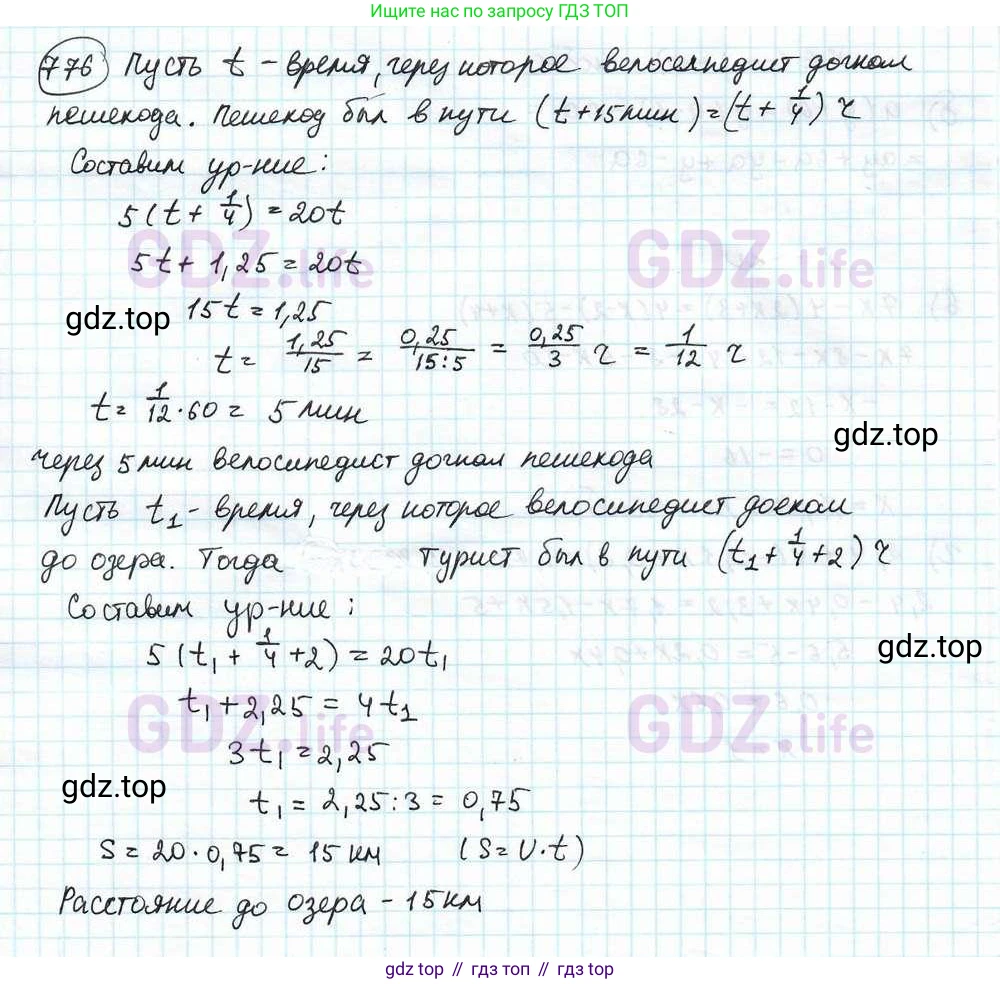 Ищите нас по запросу ГДЗ ТОП
776 Пусть t - время, через которое велосипедист догнал
пешехода. Пешеход был в пути (t+15мин)=(t+1/4) ч
Составим ур-ние:
5(t+1/4)=20t
GDZ.life GDZ.life
5t+1,25=20t
gdz.top
15t=1,25
t= 1,25/15 = 0,25/15:5 = 0,25/3 ч = 1/12 ч
t= 1/12·60= 5 мин
gdz.top
через 5 мин велосипедист догнал пешехода
Пусть t₁- время, через которое велосипедист доехал
до озера. Тогда турист был в пути (t₁+1/4+2) ч
Составим ур-ние:
5(t₁+1/4+2)=20t₁
gdz.top
t₁+2,25=4t₁
GDZ.life GDZ.life
3t₁=2,25
gdz.top
t₁=2,25:3=0,75
S=20·0,75=15 км (S=υ·t)
Расстояние до озера -15км
gdz top // гдз топ // gdz top